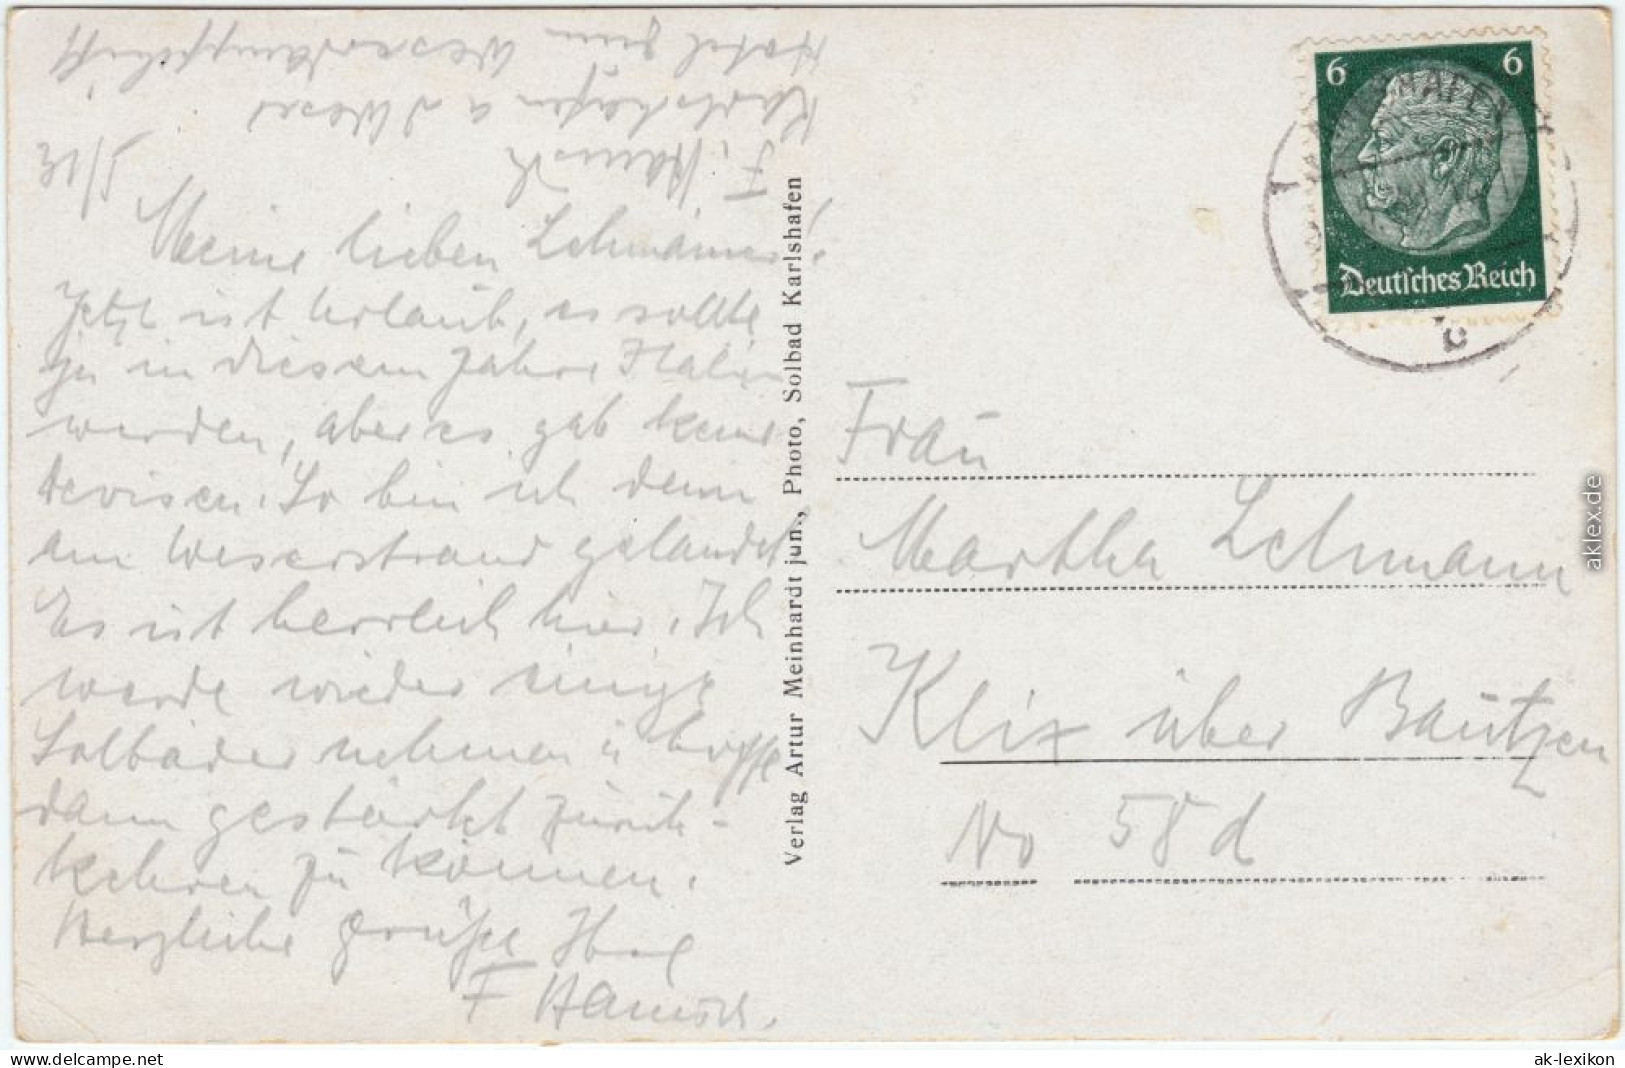 F. Hänsch
Karlshafen a d Weser
Hotel zum Weserdampfschiff
Meine lieben Lehmänner!
Jetzt ist Urlaub, es sollte
ja in diesem Jahre Italien
werden, aber es gab keine
Devisen. So bin ich denn
am Weserstrand gelandet
Es ist herrlich hier. Ich
werde wieder einige
Solbäder nehmen u hoffe
dann gestärkt zurück-
kehren zu können.
Herzliche Grüße Ihre
F Hänsch.
Verlag Artur Meinhardt jun., Photo, Solbad Karlshafen
6 6
Deutsches Reich
Frau
Martha Lehmann
Klix über Bautzen
No 58d
aklex.de
www.delcampe.net
ak-lexikon